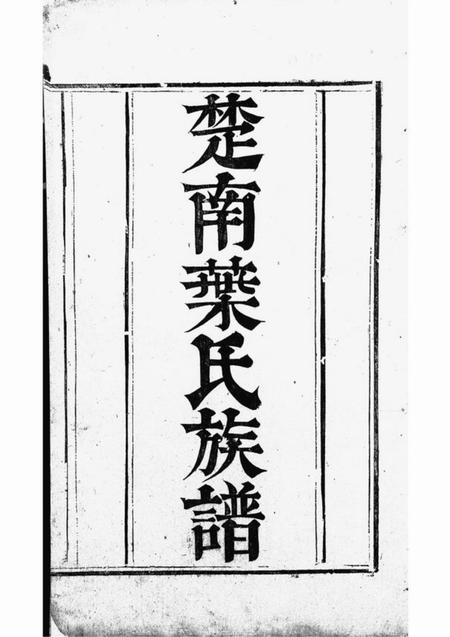 楚南葉氏族譜